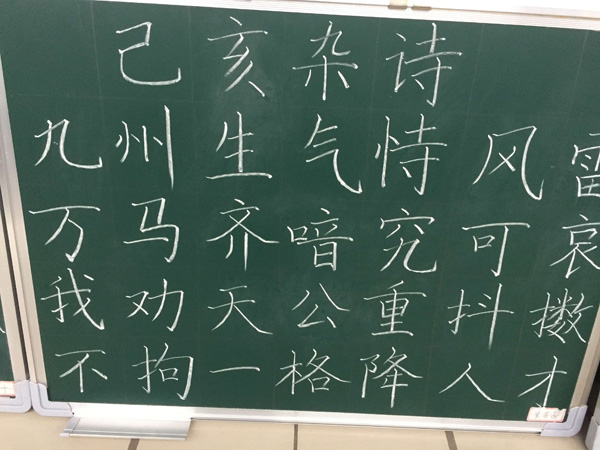 己亥杂诗
九州生气恃风雷
万马齐喑究可哀
我劝天公重抖擞
不拘一格降人才